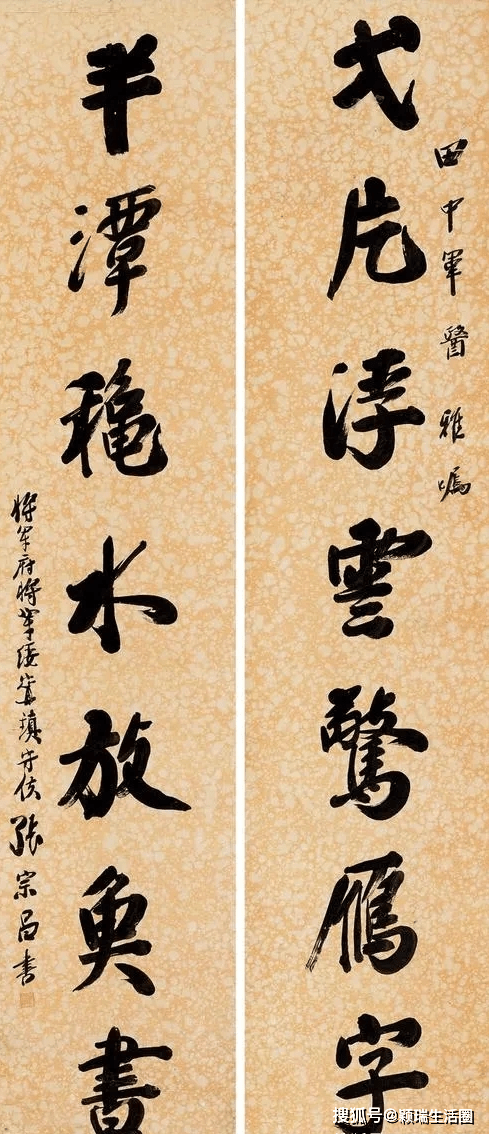 田中軍醫雅嘱
弌片浮雲驚鴈字
半潭穐水放魚書
將軍府將軍綏寧鎮守使張宗昌書
搜狐号@颖瑞生活圈